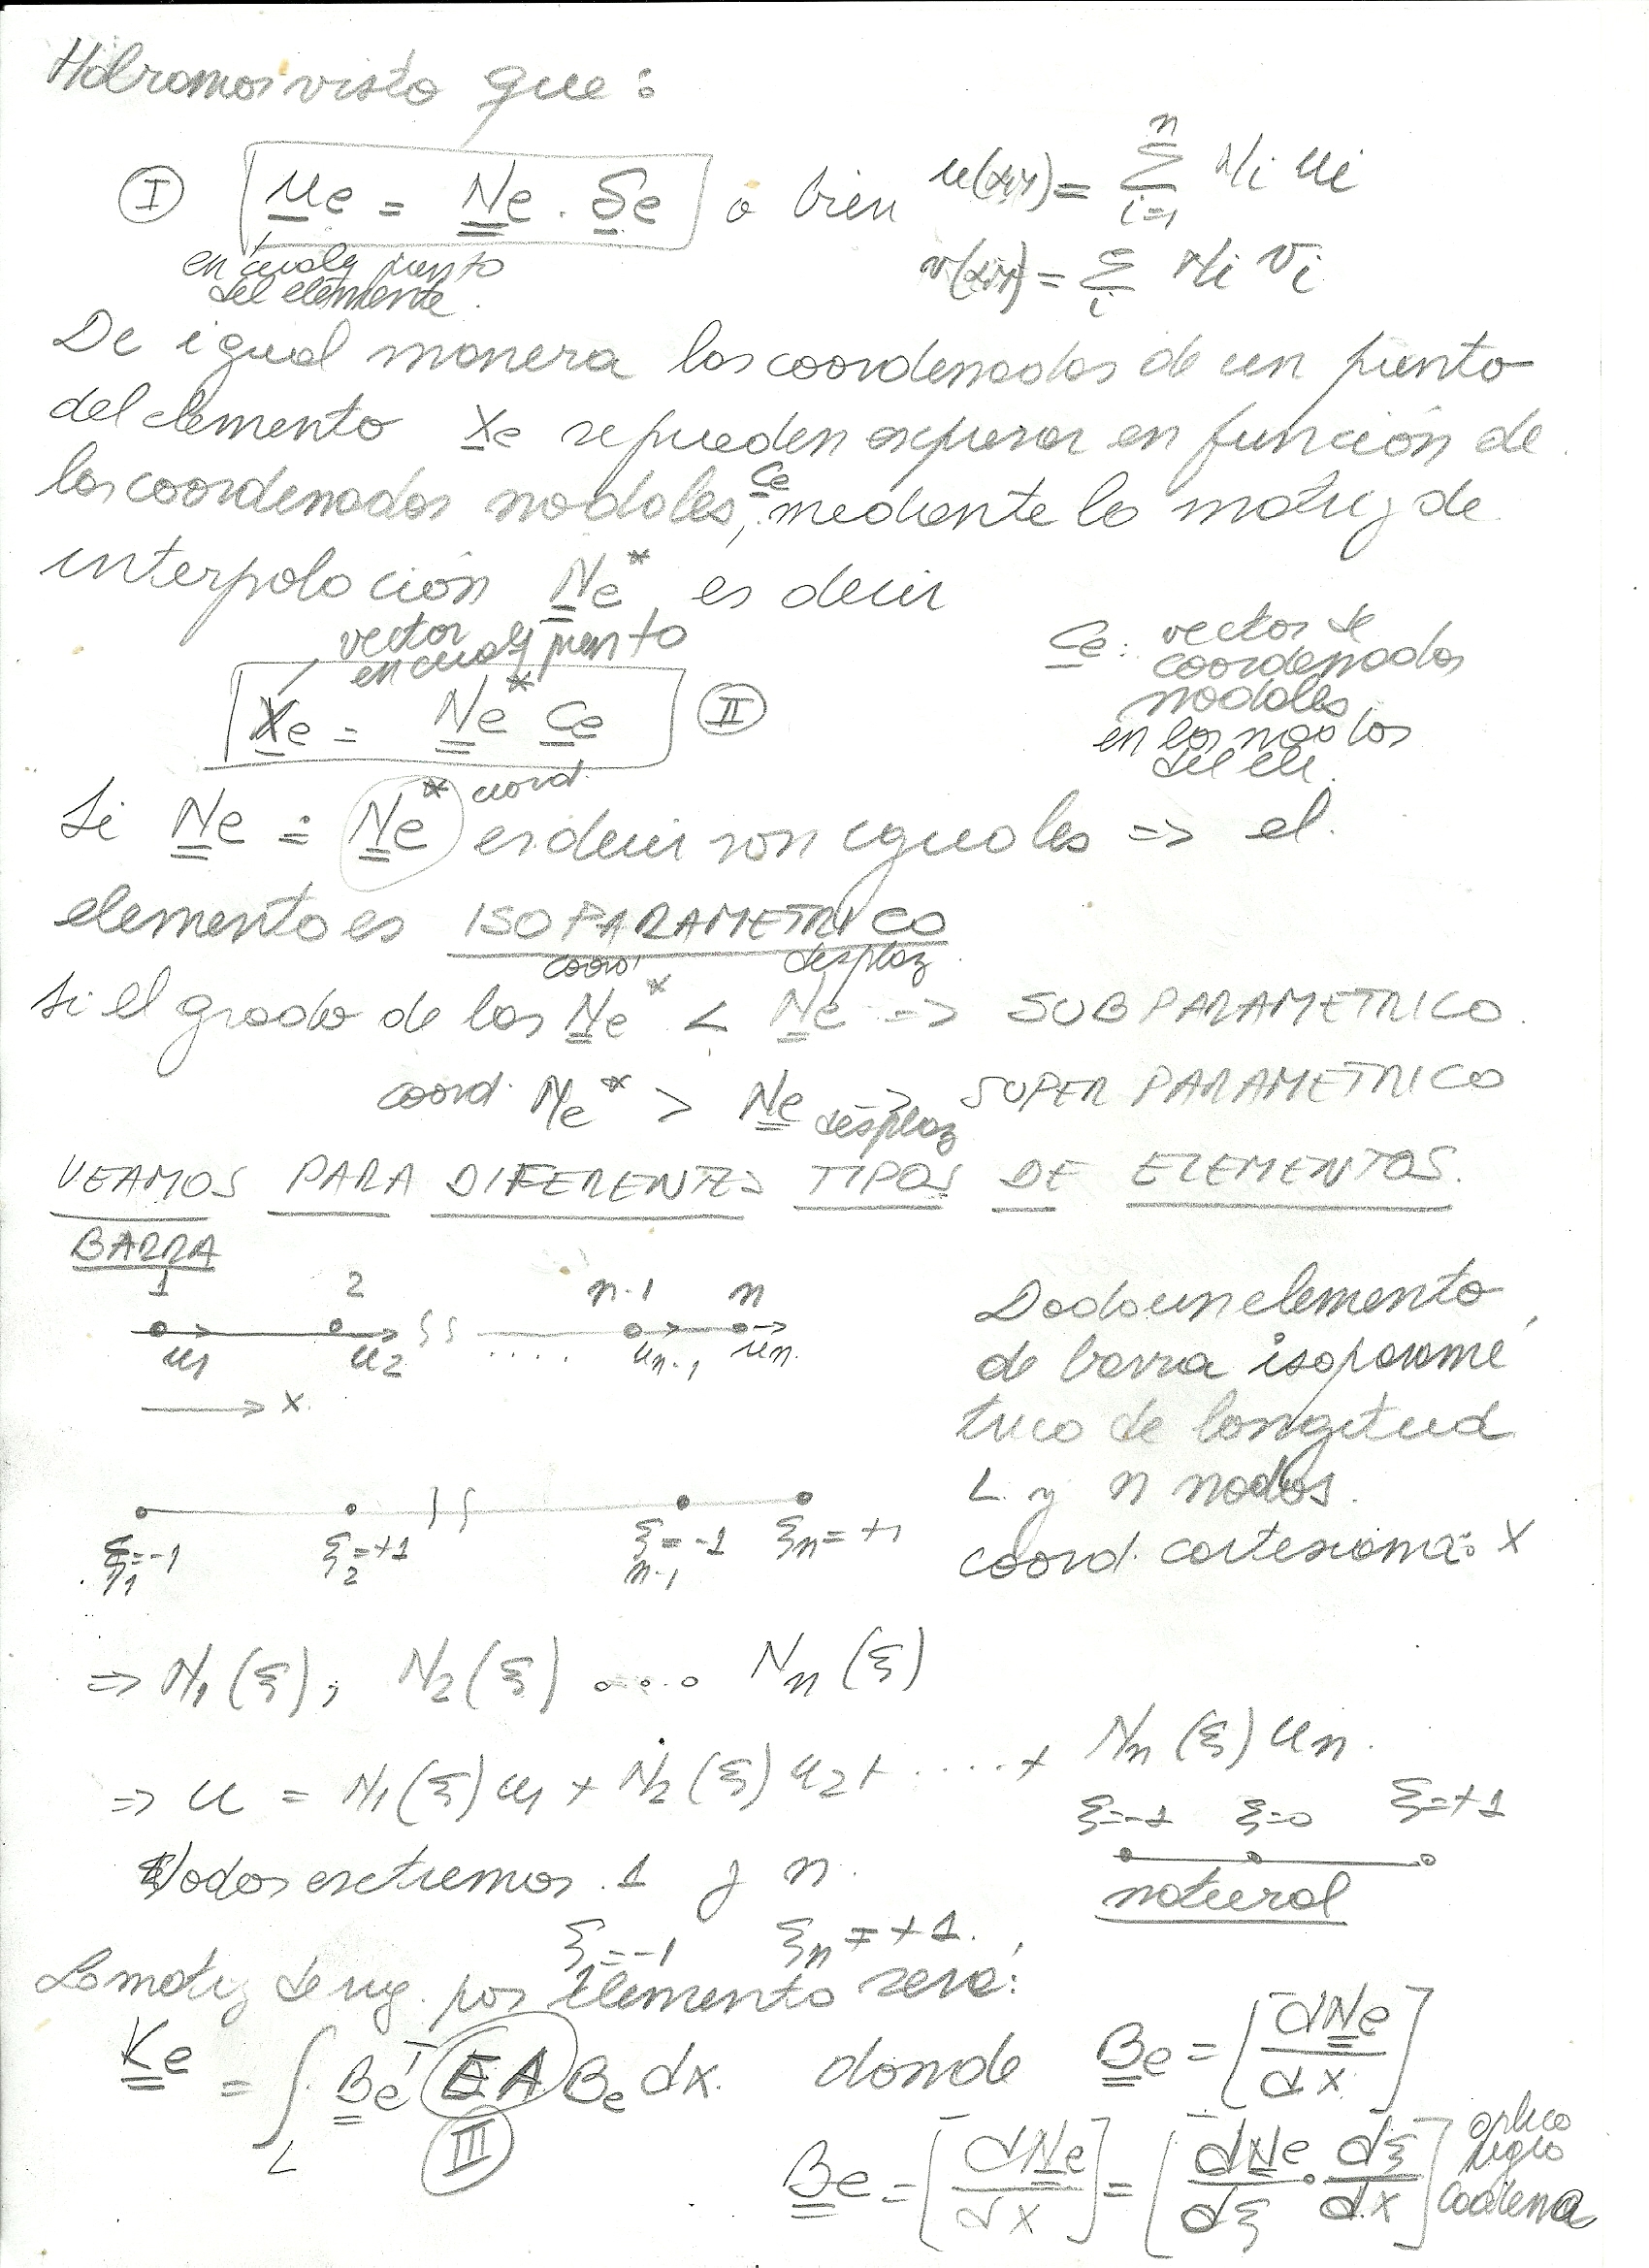 Habíamos visto que:
Ⓘ ue = Ne . δe o bien u(x,y) = Σ Ni ui
n
i=1
en cualq punto
del elemente.
v(x,y) = Σ Ni vi
i
De igual manera las coordenadas de un punto
del elemento xe se pueden expresar en función de
las coordenadas nodales, Ce mediante la matriz de
interpolación Ne* es decir
vector
en cualq punto
Xe = Ne* Ce Ⓘ Ⓘ
Ce: vector de
coordenadas
nodales
en los nodos
del ele.
Si Ne = Ne* coord. es decir son iguales => el
elemento es ISOPARAMETRICO
coord desplaz.
Si el grado de las Ne* < Ne => SUBPARAMETRICO.
coord. Ne* > Ne desplaz -> SUPER PARAMETRICO
VEAMOS PARA DIFERENTES TIPOS DE ELEMENTOS.
BARRA
1 2 n-1 n
u1 u2 .... un-1 un.
→ x.
Dado un elemento,
de barra isoparamé
trico de longitud
L y n nodos.
coord. cartesiana: X
ξ1=-1 ξ2=+1 ξn-1=-1 ξn=+1
=> N1(ξ), N2(ξ) .... Nn(ξ)
=> u = N1(ξ)u1 + N2(ξ)u2 + .... + Nn(ξ)un.
ξ=-1 ξ=0 ξ=+1
natural
Nodos extremos 1 y n.
ξ=-1 ξn=+1.
La matriz de rig. por elemento será:
Ke = ∫L Be^T EA Be dx. donde Be = [dNe/dx]
III
Be = [dNe/dx] = [dNe/dξ . dξ/dx] aplico
regla
cadena